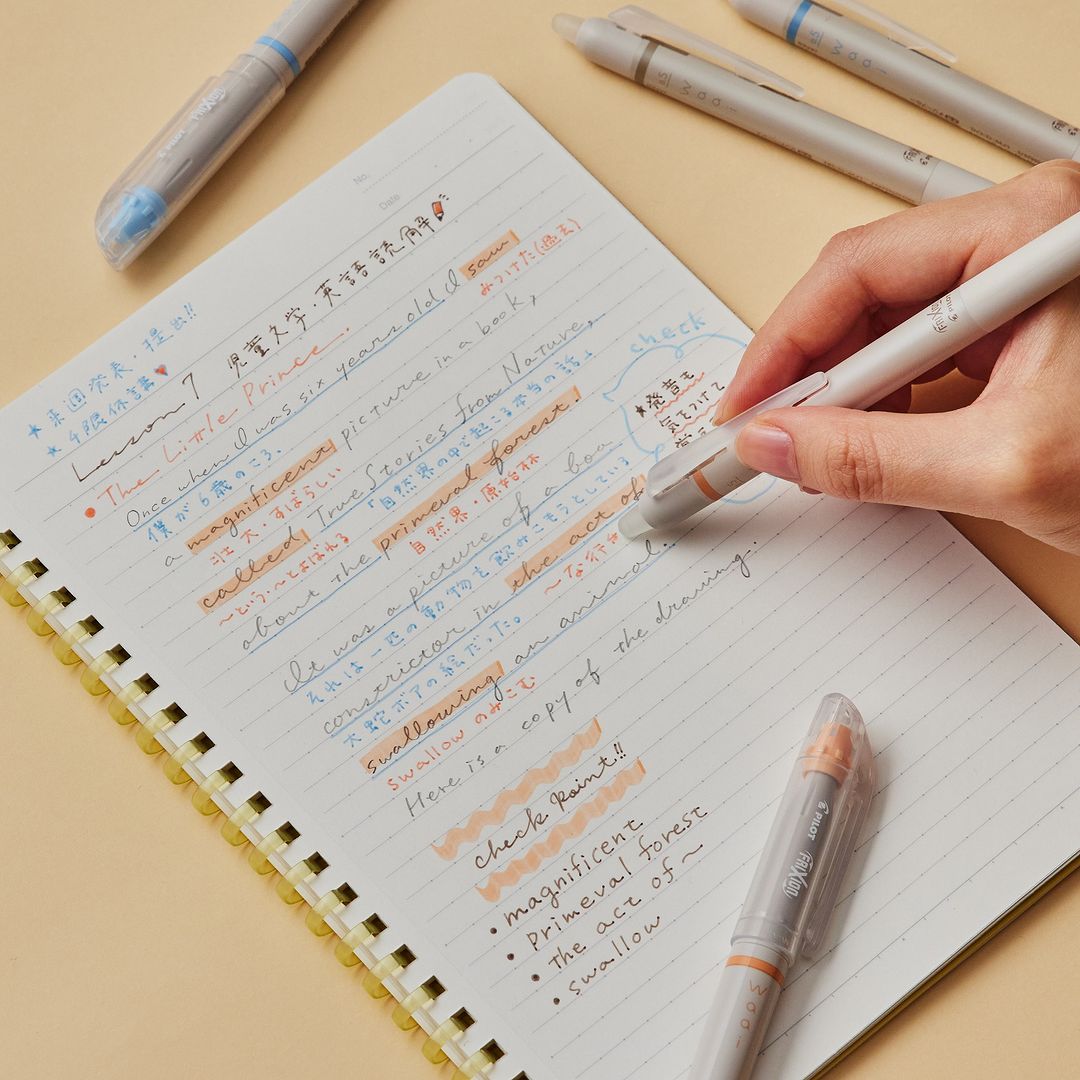 No.
Date
★来週発表・提出!!
★4限休講♥
Lesson 7 児童文学・英語読解
• The Little Prince.
Once when I was six years old I saw
僕が6歳のころ、 みつけた(過去)
a magnificent picture in a book,
壮大・すばらしい
called True Stories from Nature,
〜という・〜とよばれる 「自然界の中で起こる本当の話」
about the primeval forest.
自然界・原始林
It was a picture of a boa
それは一匹の動物を飲みこもうとしている
constrictor in the act of
大蛇ボアの絵だった。 〜な行
swallowing an animal.
swallow のみこむ
Here is a copy of the drawing.
check
★発音も
気をつけて
check point!!
• magnificent
• primeval forest
• the act of 〜
• swallow
PILOT FRIXION
0.5 Waai
0.5 Waai
FRIXION PILOT
PILOT FRIXION
Waai